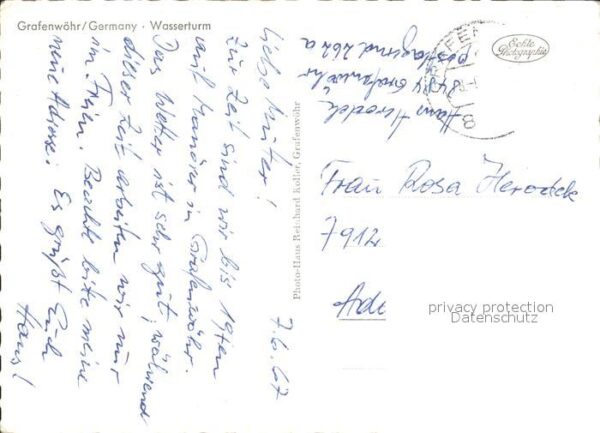 Grafenwöhr/Germany · Wasserturm
Echte Photographie
Hans Herodek
8484 Grafenwöhr
7.6.67
Liebe Mutter!
Zur Zeit sind wir bis 19ten
auf Manöver in Grafenwöhr.
Das Wetter ist sehr gut, während
dieser Zeit arbeiten wir nur
im Freien. Beachte bitte meine
neue Adresse. Es grüßt Euch
Hans!
Photo-Haus Reinhard Koller, Grafenwöhr
Frau Rosa Herodek
7912
privacy protection
Datenschutz